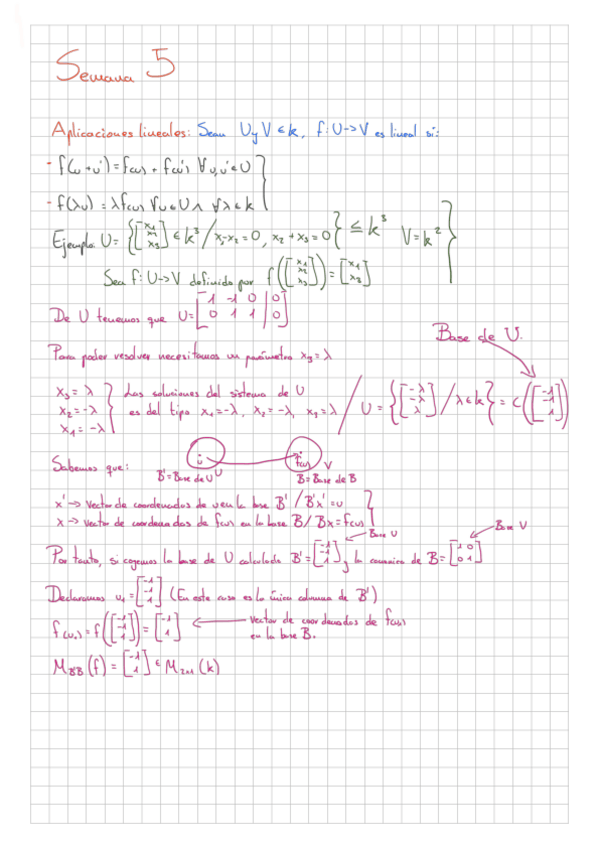 Semana 5
Aplicaciones lineales: Sean U y V ∈ k, f: U → V es lineal si:
- f(u + u') = f(u) + f(u') ∀ u, u' ∈ U
- f(λu) = λf(u) ∀ u ∈ U ∧ ∀ λ ∈ k
Ejemplo U = {[x1 x2 x3] ∈ k^3 / x1-x2 = 0, x2 + x3 = 0} ≤ k^3 V = k^2
Sea f: U → V definido por f([x1 x2 x3]) = [x1 x3]
De U tenemos que U = [1 -1 0 | 0; 0 1 1 | 0]
Base de U.
Para poder resolver necesitamos un parámetro x3 = λ
x3 = λ Las soluciones del sistema de U
x2 = -λ es del tipo x1 = -λ, x2 = -λ, x3 = λ / U = {[-λ -λ λ] / λ ∈ k} = C([-1 -1 1])
x1 = -λ
Sabemos que: u f(u) U V
B' = Base de U B = Base de B
x' → vector de coordenadas de u en la base B' / B'x' = u
x → vector de coordenadas de f(u) en la base B / Bx = f(u)
Base U Base V
Por tanto, si cogemos la base de U calculada B' = [-1 -1 1], y la canonica de B = [1 0; 0 1]
Declaramos u1 = [-1 -1 1] (En este caso es la única columna de B')
f(u1) = f([-1 -1 1]) = [-1 1] ← vector de coordenados de f(u)
en la base B.
M_B'B (f) = [-1 1] ∈ M_2x1 (k)